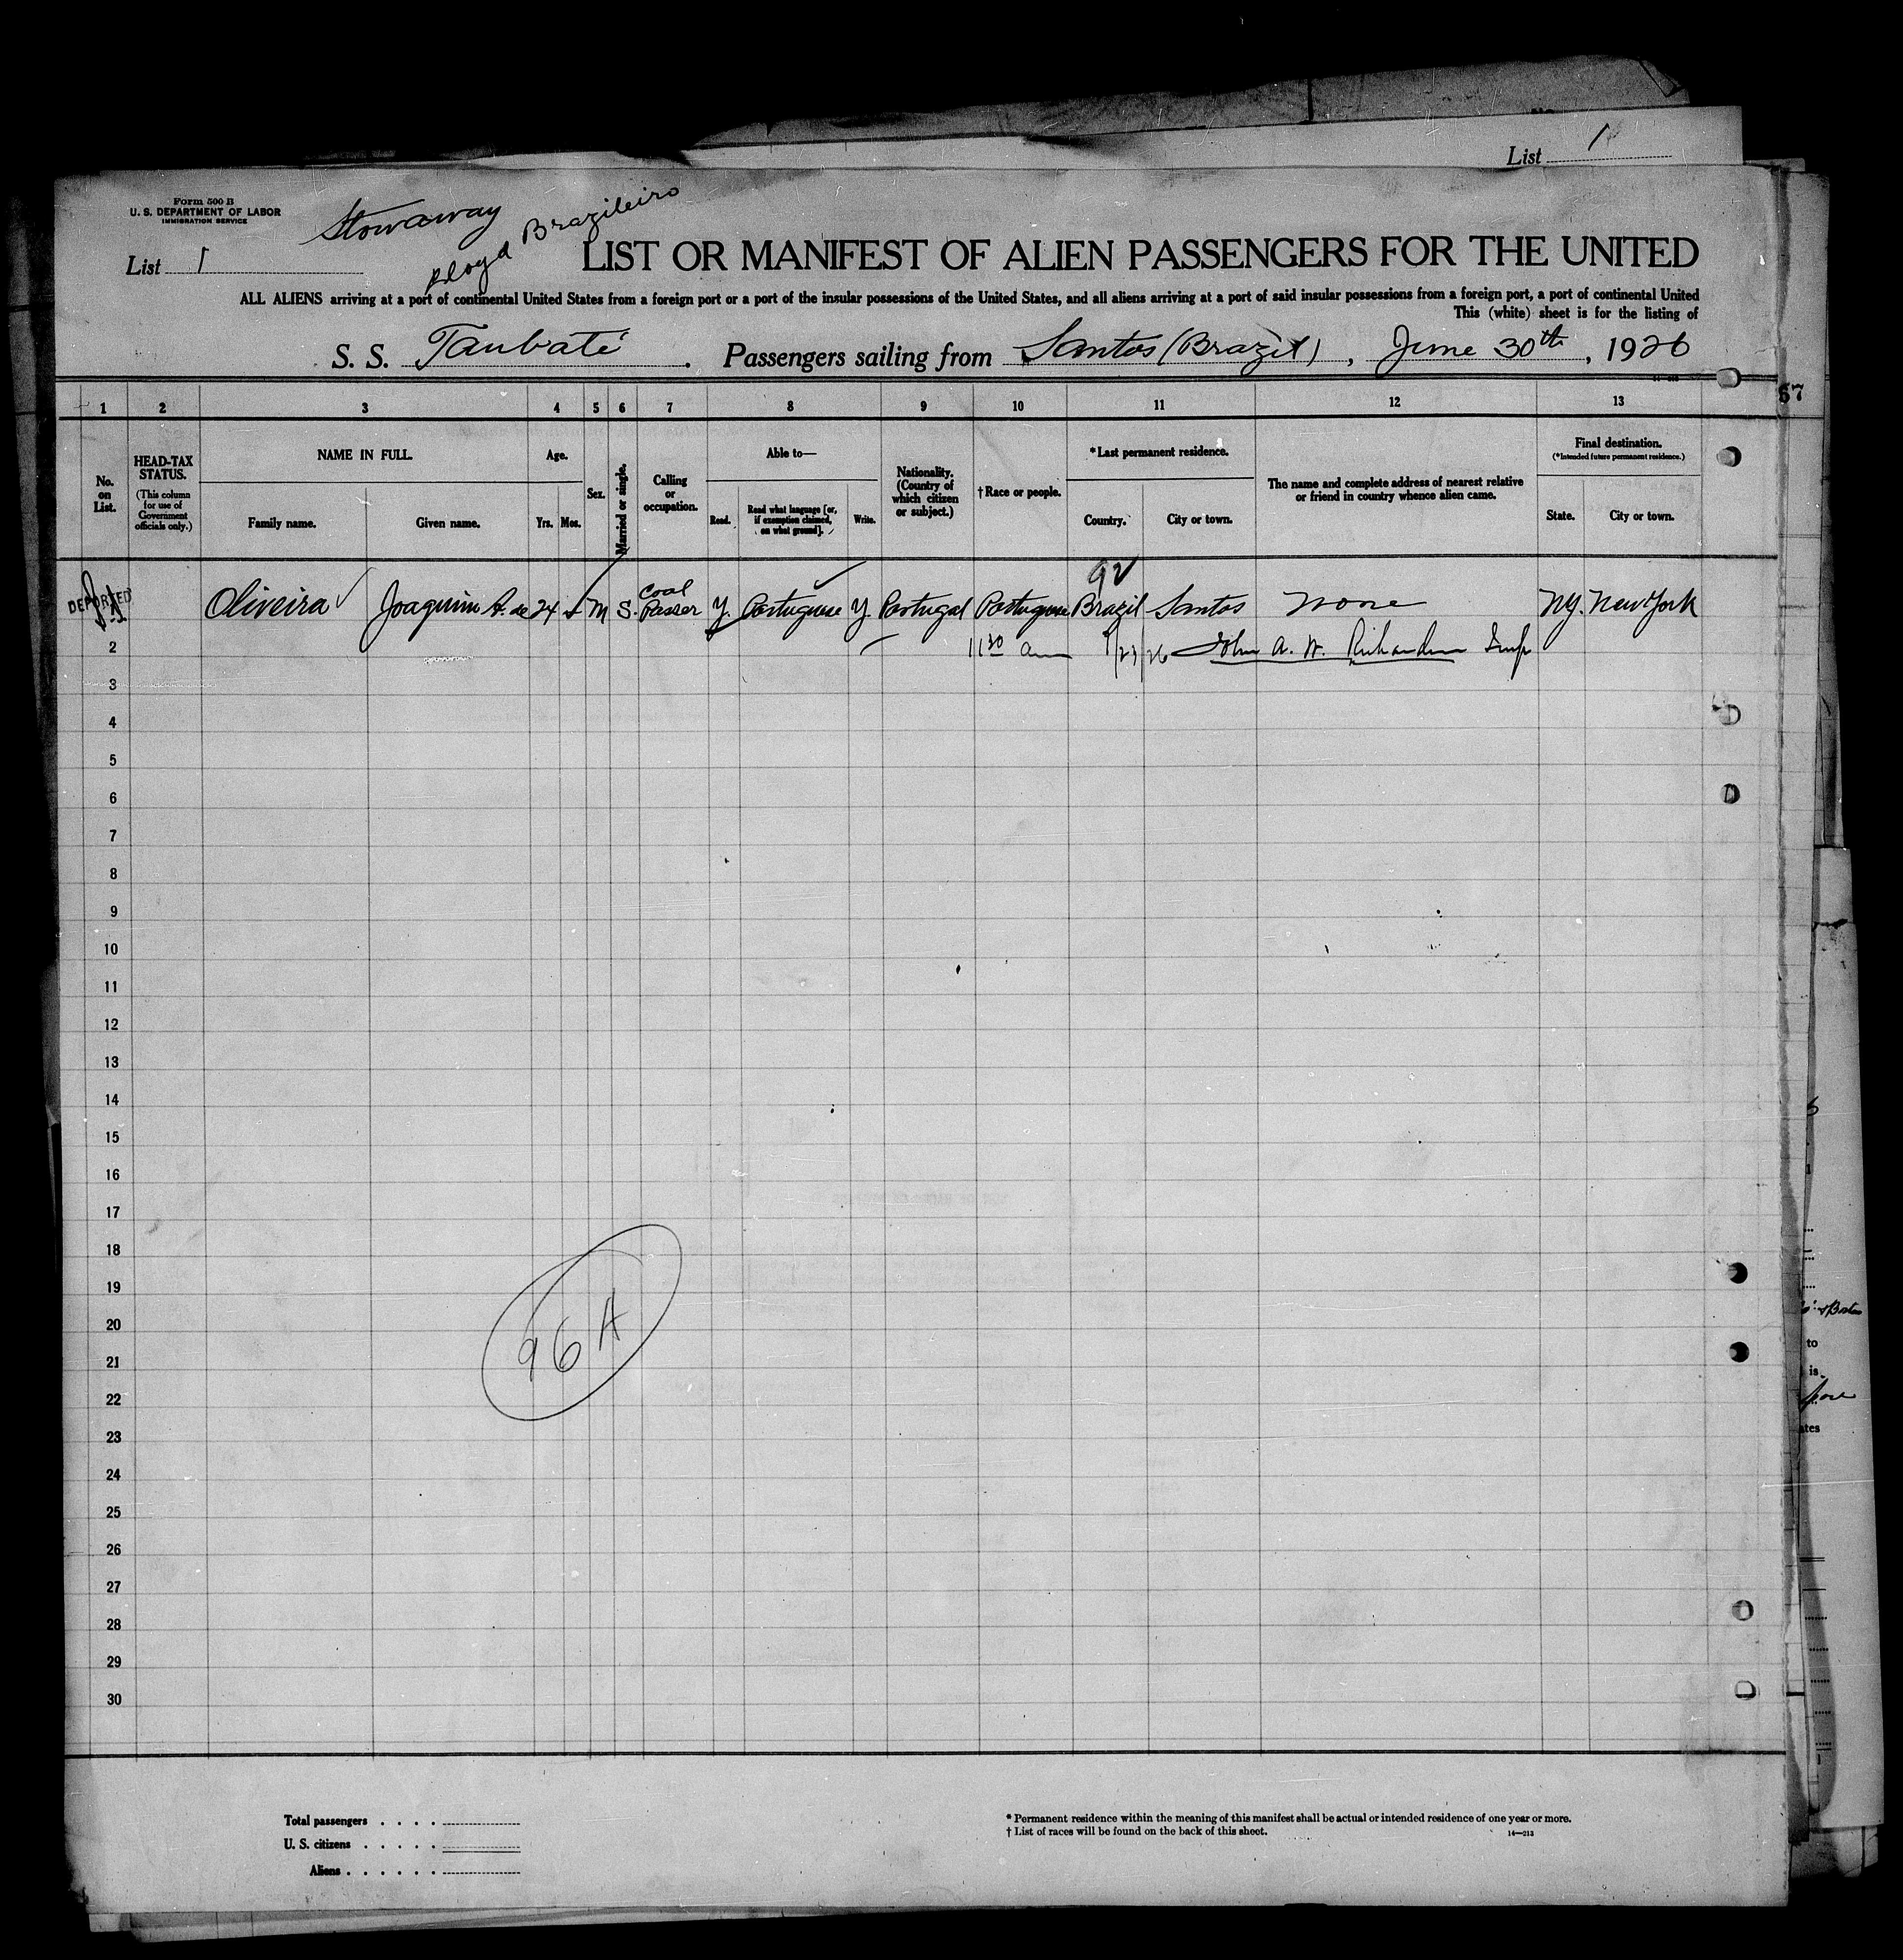 List 1
Form 500 B
U. S. DEPARTMENT OF LABOR
IMMIGRATION SERVICE
Stowaway
Lloyd Brazileiro
List 1
LIST OR MANIFEST OF ALIEN PASSENGERS FOR THE UNITED
ALL ALIENS arriving at a port of continental United States from a foreign port or a port of the insular possessions of the United States, and all aliens arriving at a port of said insular possessions from a foreign port, a port of continental United
This (white) sheet is for the listing of
S. S. Taubaté . Passengers sailing from Santos (Brazil) , June 30th , 1926
1 2 3 4 5 6 7 8 9 10 11 12 13
No. on List.
HEAD-TAX STATUS.
(This column for use of Government officials only.)
NAME IN FULL.
Family name. Given name.
Age.
Yrs. Mos.
Sex.
Married or single.
Calling or occupation.
Able to—
Read. Read what language [or, if exemption claimed, on what ground]. Write.
Nationality. (Country of which citizen or subject.)
† Race or people.
* Last permanent residence.
Country. City or town.
The name and complete address of nearest relative or friend in country whence alien came.
Final destination.
(* Intended future permanent residence.)
State. City or town.
DEPORTED Oliveira Joaquim A. de 24 M S. Coal Passer Y. Portuguese Y Portugal Portuguese Brazil Santos None NY. New York
2 11 30 am John A. W. Richardson Insp
3
4
5
6
7
8
9
10
11
12
13
14
15
16
17
18
19
20
21
22
23
24
25
26
27
28
29
30
96 A
Total passengers . . . .
U. S. citizens . . . . .
Aliens . . . . . .
* Permanent residence within the meaning of this manifest shall be actual or intended residence of one year or more.
† List of races will be found on the back of this sheet.
14—213
to
is